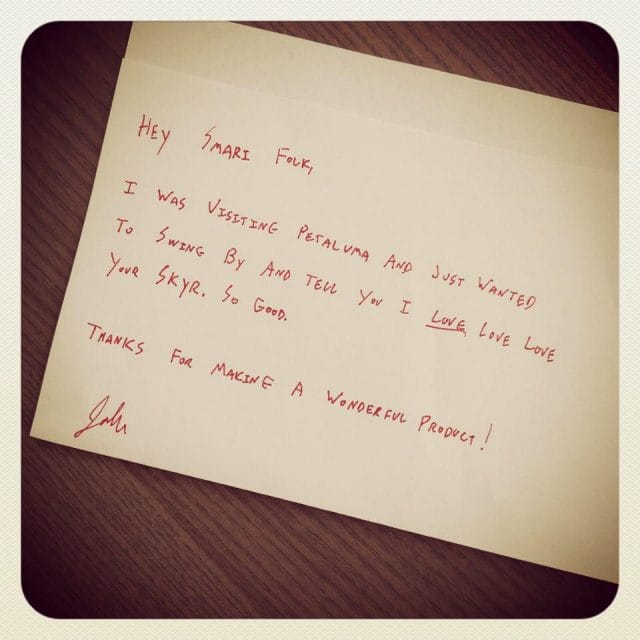 HEY SMARI FOLK,
I WAS VISITING PETALUMA AND JUST WANTED
TO SWING BY AND TELL YOU I LOVE LOVE LOVE
YOUR SKYR. SO GOOD.
THANKS FOR MAKING A WONDERFUL PRODUCT!
John